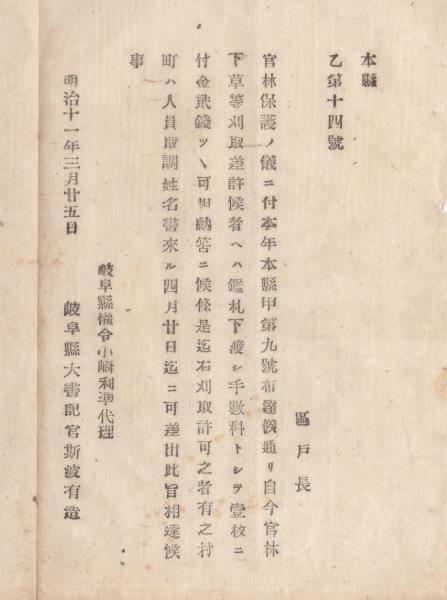 本縣
乙第十四號
區戸長
官林保護ノ儀ニ付本年本縣甲第九號布達候通リ自今官林
下草等刈取差許候者ヘハ鑑札下渡シ手數料トシテ壹枚ニ
付金貳錢ツヽ可相納筈ニ候條是迄右刈取許可之者有之村
町ハ人員取調姓名書來ル四月廿日迄ニ可差出此旨相達候
事
明治十一年三月廿五日
岐阜縣權令小崎利準代理
岐阜縣大書記官斯波有造